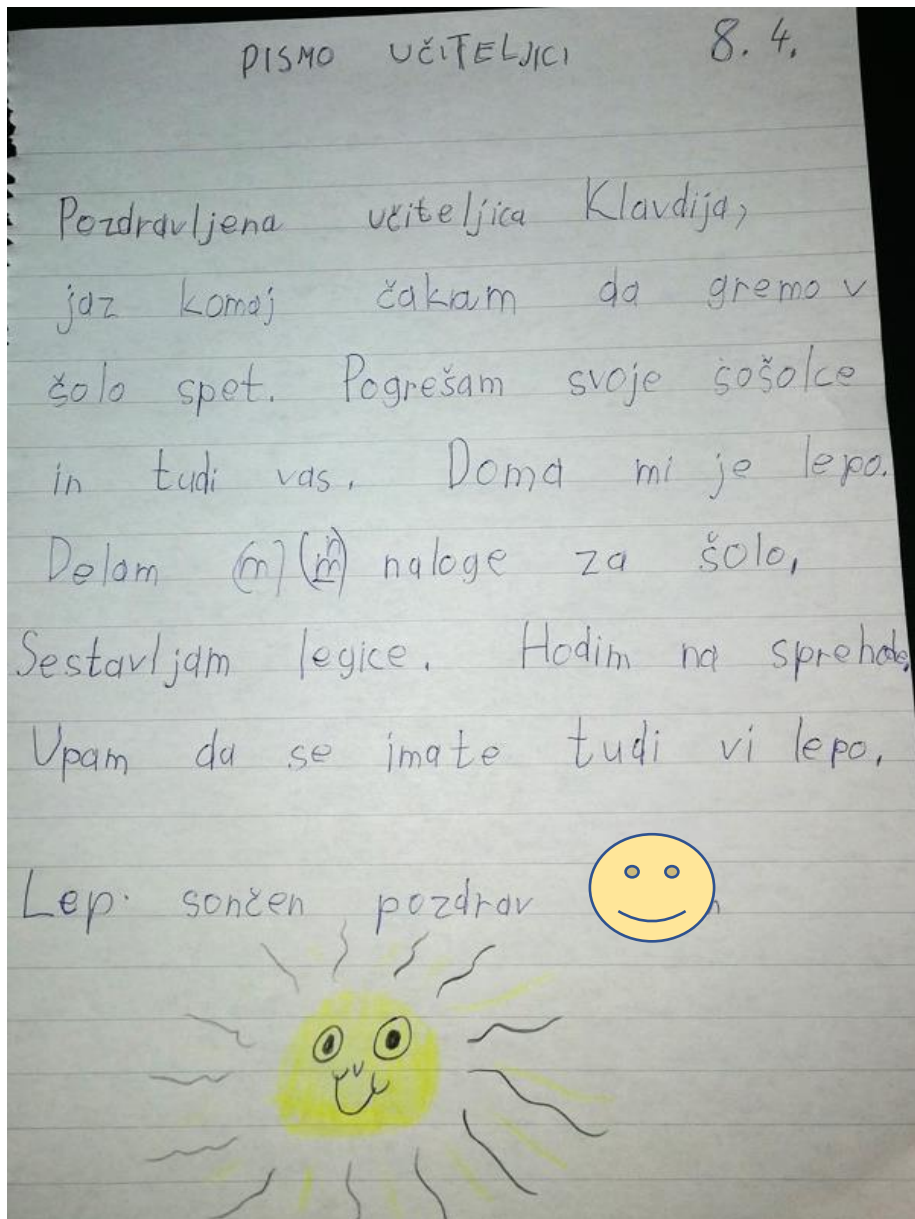 PISMO UČITELJICI 8. 4.
Pozdravljena učiteljica Klavdija,
jaz komaj čakam da gremo v
šolo spet. Pogrešam svoje sošolce
in tudi vas. Doma mi je lepo.
Delam (m) (m) naloge za šolo,
Sestavljam legice. Hodim na sprehode.
Upam da se imate tudi vi lepo.
Lep sončen pozdrav